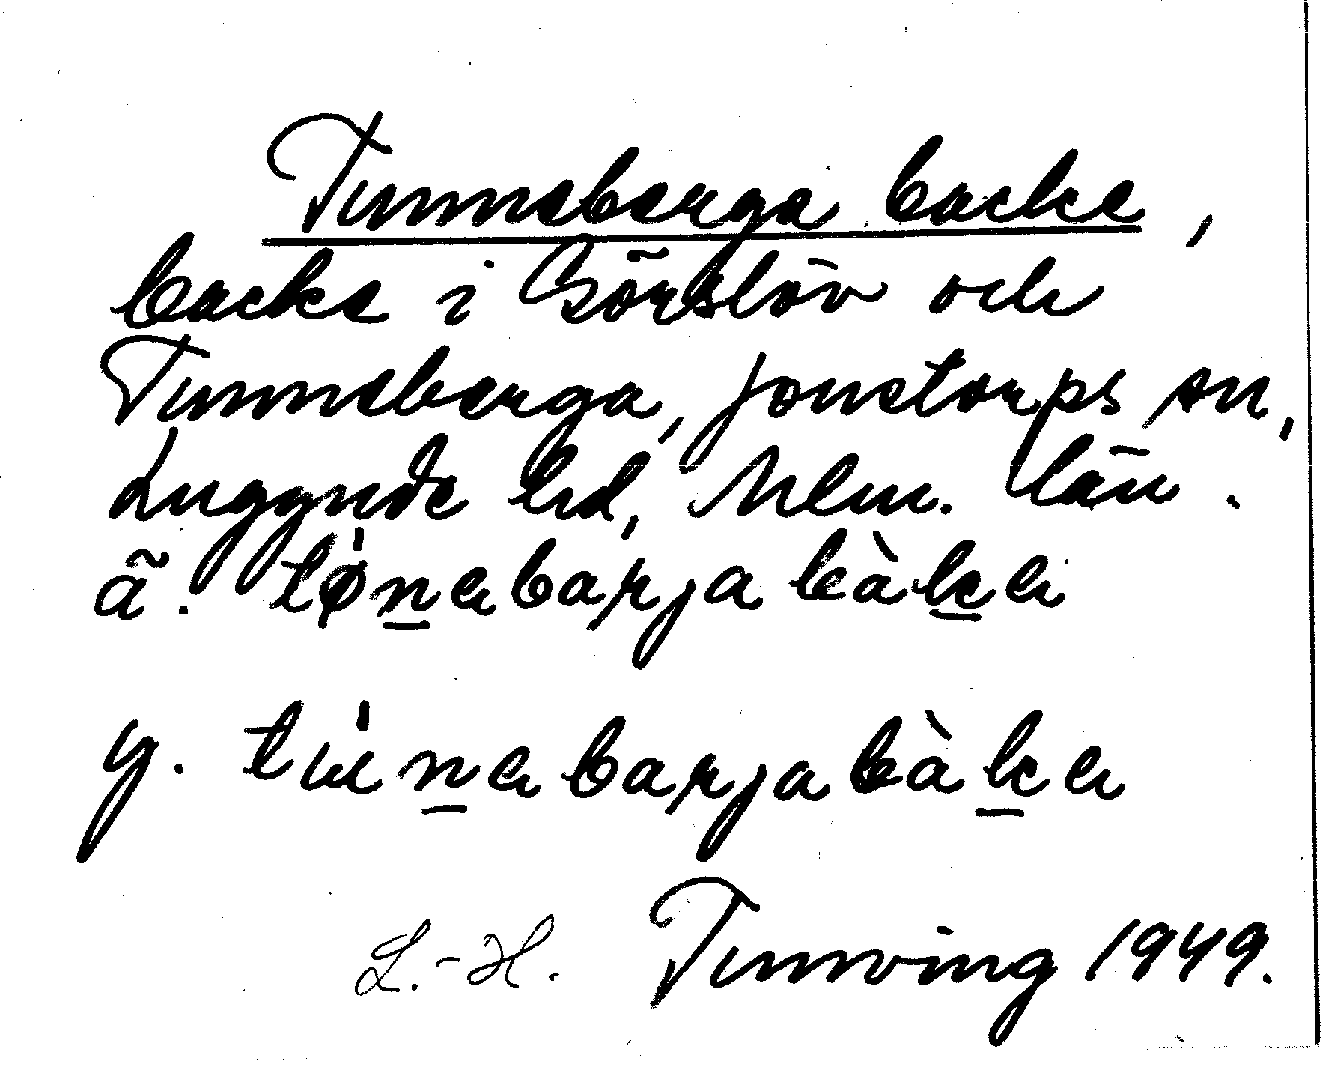 Tunneberga backe,
backe i Görslöv och
Tunneberga, Jonstorps sn,
Luggude hd, Mlm. län.
ä. tø̀nabarjabàka
y. tùnabarjabàka
L.-H. Tunving 1949.